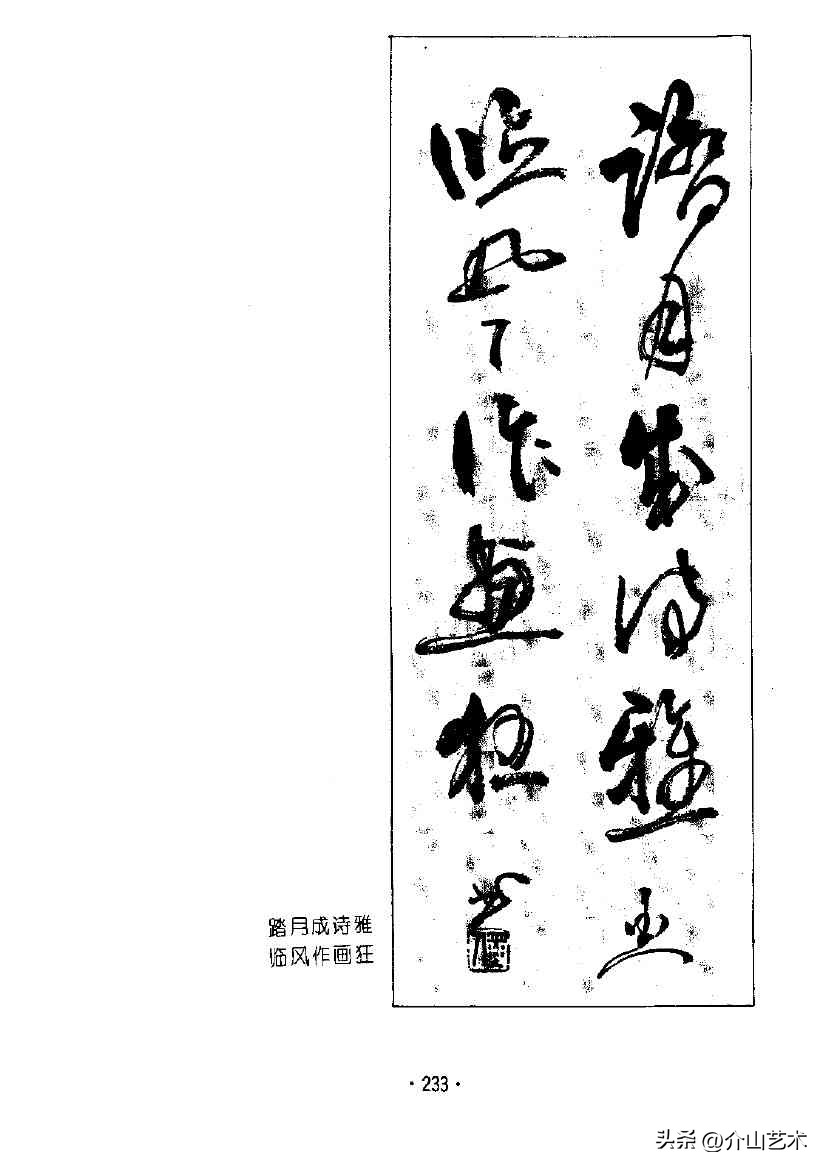 踏月成诗雅
临风作画狂
踏月成诗雅
临风作画狂
·233·
头条 @介山艺术